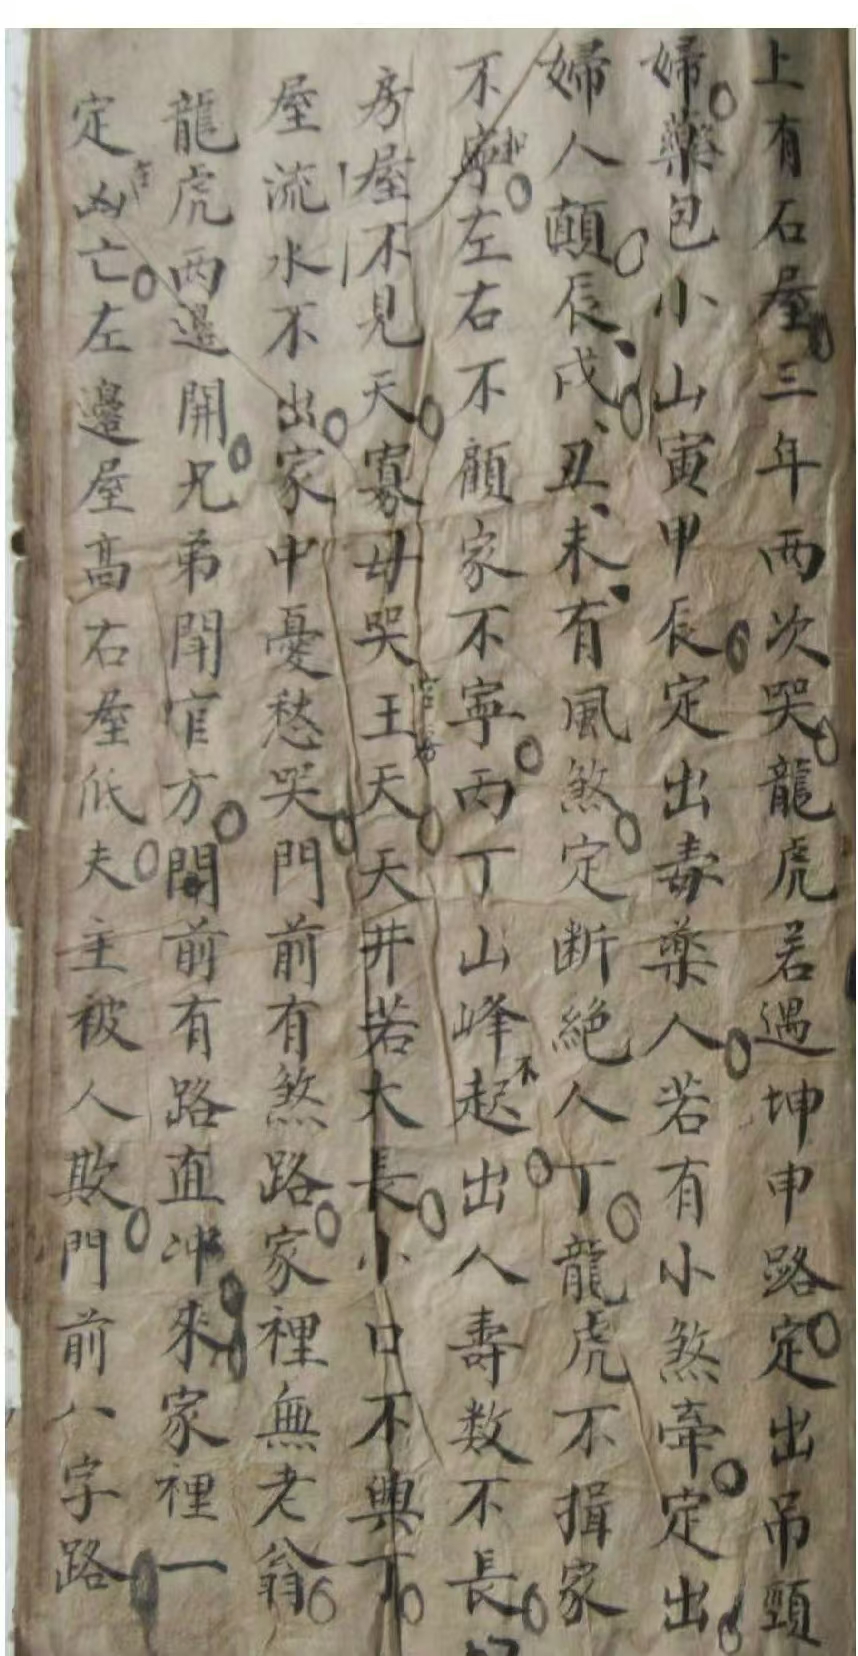 上有石屋三年两次哭龍虎若遇坤申路定出吊頸
婦藥包小山寅甲辰定出毒藥人若有小煞牽定出
婦人顛辰戌丑未有風煞定断絕人丁龍虎不揖家
不寧左右不顧家不寧丙丁山峰起不出人壽数不長
房屋不見天寡母哭王天天井若大長小口不興丁
屋流水不出家中憂愁哭門前有煞路家裡無老翁
龍虎两邊開兄弟鬧官方開前有路直冲來家裡一
定凶亡左邊屋高右屋低夫主被人欺門前八字路